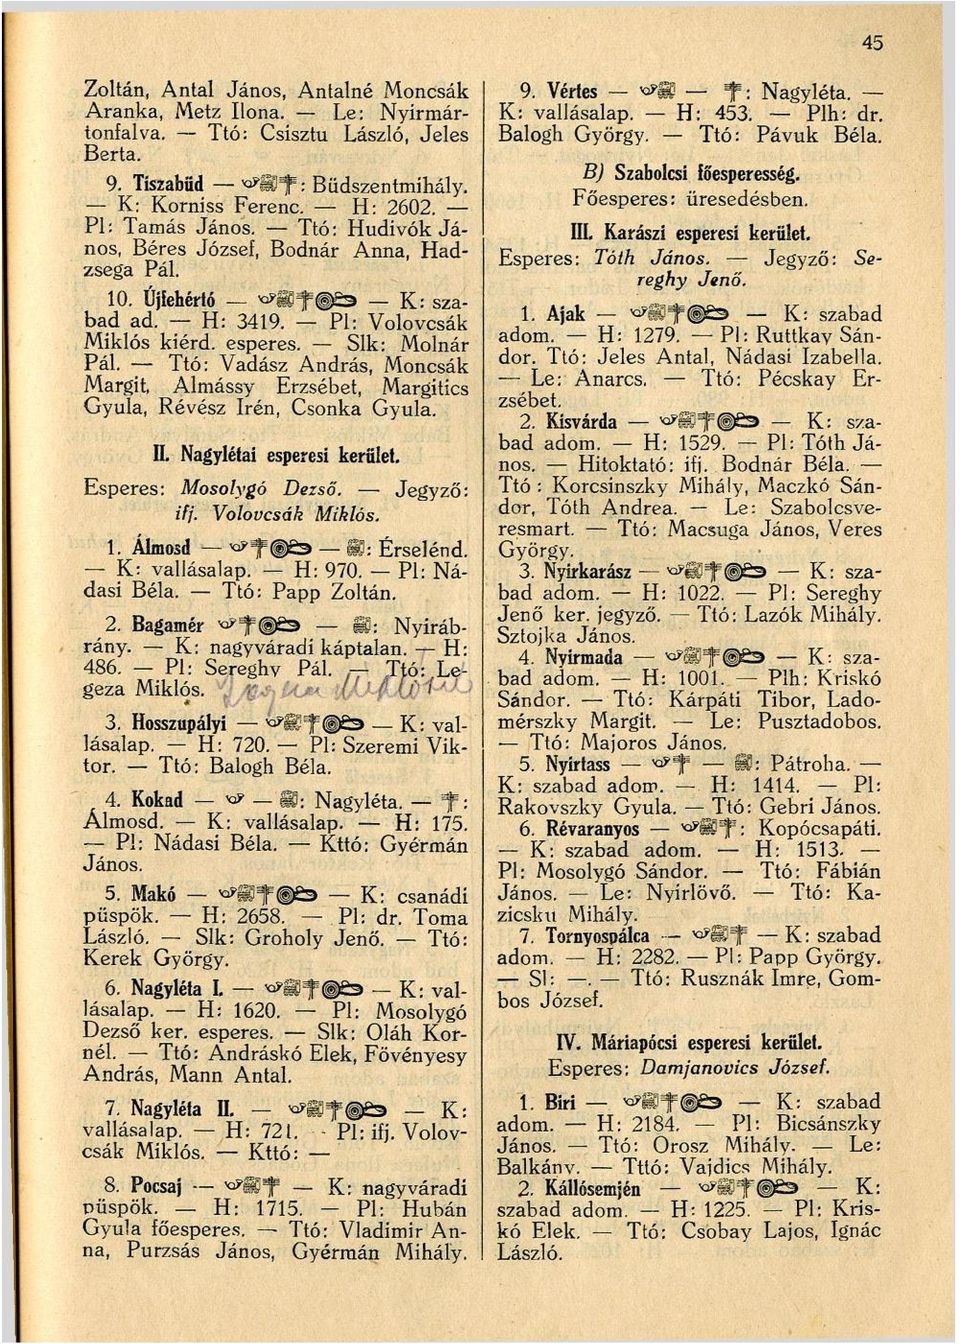 45
Zoltán, Antal János, Antalné Moncsák
Aranka, Metz Ilona. — Le: Nyirmár-
tonfalva. — Ttó: Csisztu László, Jeles
Berta.
9. Tiszabüd — : Büdszentmihály.
— K: Korniss Ferenc. — H: 2602. —
Pl: Tamás János. — Ttó: Hudivók Já-
nos, Béres József, Bodnár Anna, Had-
zsega Pál.
10. Újfehértó — — K: sza-
bad ad. — H: 3419. — Pl: Volovcsák
Miklós kiérd. esperes. — Slk: Molnár
Pál. — Ttó: Vadász András, Moncsák
Margit, Almássy Erzsébet, Margitics
Gyula, Révész Irén, Csonka Gyula.
II. Nagylétai esperesi kerület.
Esperes: Mosolygó Dezső. — Jegyző:
ifj. Volovcsák Miklós.
1. Álmosd — — : Érselénd.
— K: vallásalap. — H: 970. — Pl: Ná-
dasi Béla. — Ttó: Papp Zoltán.
2. Bagamér — : Nyiráb-
rány. — K: nagyváradi káptalan. — H:
486. — Pl: Sereghy Pál. — Ttó: Le-
geza Miklós.
3. Hosszupályi — — K: val-
lásalap. — H: 720. — Pl: Szeremi Vik-
tor. — Ttó: Balogh Béla.
4. Kokad — — : Nagyléta. — :
Álmosd. — K: vallásalap. — H: 175.
— Pl: Nádasi Béla. — Kttó: Gyérmán
János.
5. Makó — — K: csanádi
püspök. — H: 2658. — Pl: dr. Toma
László. — Slk: Groholy Jenő. — Ttó:
Kerek György.
6. Nagyléta I. — — K: val-
lásalap. — H: 1620. — Pl: Mosolygó
Dezső ker. esperes. — Slk: Oláh Kor-
nél. — Ttó: Andráskó Elek, Fövényesy
András, Mann Antal.
7. Nagyléta II. — — K:
vallásalap. — H: 721. - Pl: ifj. Volov-
csák Miklós. — Kttó: —
8. Pocsaj — — K: nagyváradi
püspök. — H: 1715. — Pl: Hubán
Gyula főesperes. — Ttó: Vladimir An-
na, Purzsás János, Gyérmán Mihály.
9. Vértes — — : Nagyléta. —
K: vallásalap. — H: 453. — Plh: dr.
Balogh György. — Ttó: Pávuk Béla.
B) Szabolcsi főesperesség.
Főesperes: üresedésben.
III. Karászi esperesi kerület.
Esperes: Tóth János. — Jegyző: Se-
reghy Jenő.
1. Ajak — — K: szabad
adom. — H: 1279. — Pl: Ruttkay Sán-
dor. Ttó: Jeles Antal, Nádasi Izabella.
— Le: Anarcs. — Ttó: Pécskay Er-
zsébet.
2. Kisvárda — — K: sza-
bad adom. — H: 1529. — Pl: Tóth Já-
nos. — Hitoktató: ifj. Bodnár Béla. —
Ttó: Korcsinszky Mihály, Maczkó Sán-
dor, Tóth Andrea. — Le: Szabolcsve-
resmart. — Ttó: Macsuga János, Veres
György.
3. Nyirkarász — — K: sza-
bad adom. — H: 1022. — Pl: Sereghy
Jenő ker. jegyző. — Ttó: Lazók Mihály.
Sztojka János.
4. Nyirmada — — K: sza-
bad adom. — H: 1001. — Plh: Kriskó
Sándor. — Ttó: Kárpáti Tibor, Lado-
mérszky Margit. — Le: Pusztadobos.
— Ttó: Majoros János.
5. Nyirtass — — : Pátroha. —
K: szabad adom. — H: 1414. — Pl:
Rakovszky Gyula. — Ttó: Gebri János.
6. Révaranyos — : Kopócsapáti.
— K: szabad adom. — H: 1513. —
Pl: Mosolygó Sándor. — Ttó: Fábián
János. — Le: Nyirlövő. — Ttó: Ka-
zicsku Mihály.
7. Tornyospálca — — K: szabad
adom. — H: 2282. — Pl: Papp György.
— Sl: —. — Ttó: Rusznák Imre, Gom-
bos József.
IV. Máriapócsi esperesi kerület.
Esperes: Damjanovics József.
1. Biri — — K: szabad
adom. — H: 2184. — Pl: Bicsánszky
János. — Ttó: Orosz Mihály. — Le:
Balkány. — Tttó: Vajdics Mihály.
2. Kállósemjén — — K:
szabad adom. — H: 1225. — Pl: Kris-
kó Elek. — Ttó: Csobay Lajos, Ignác
László.